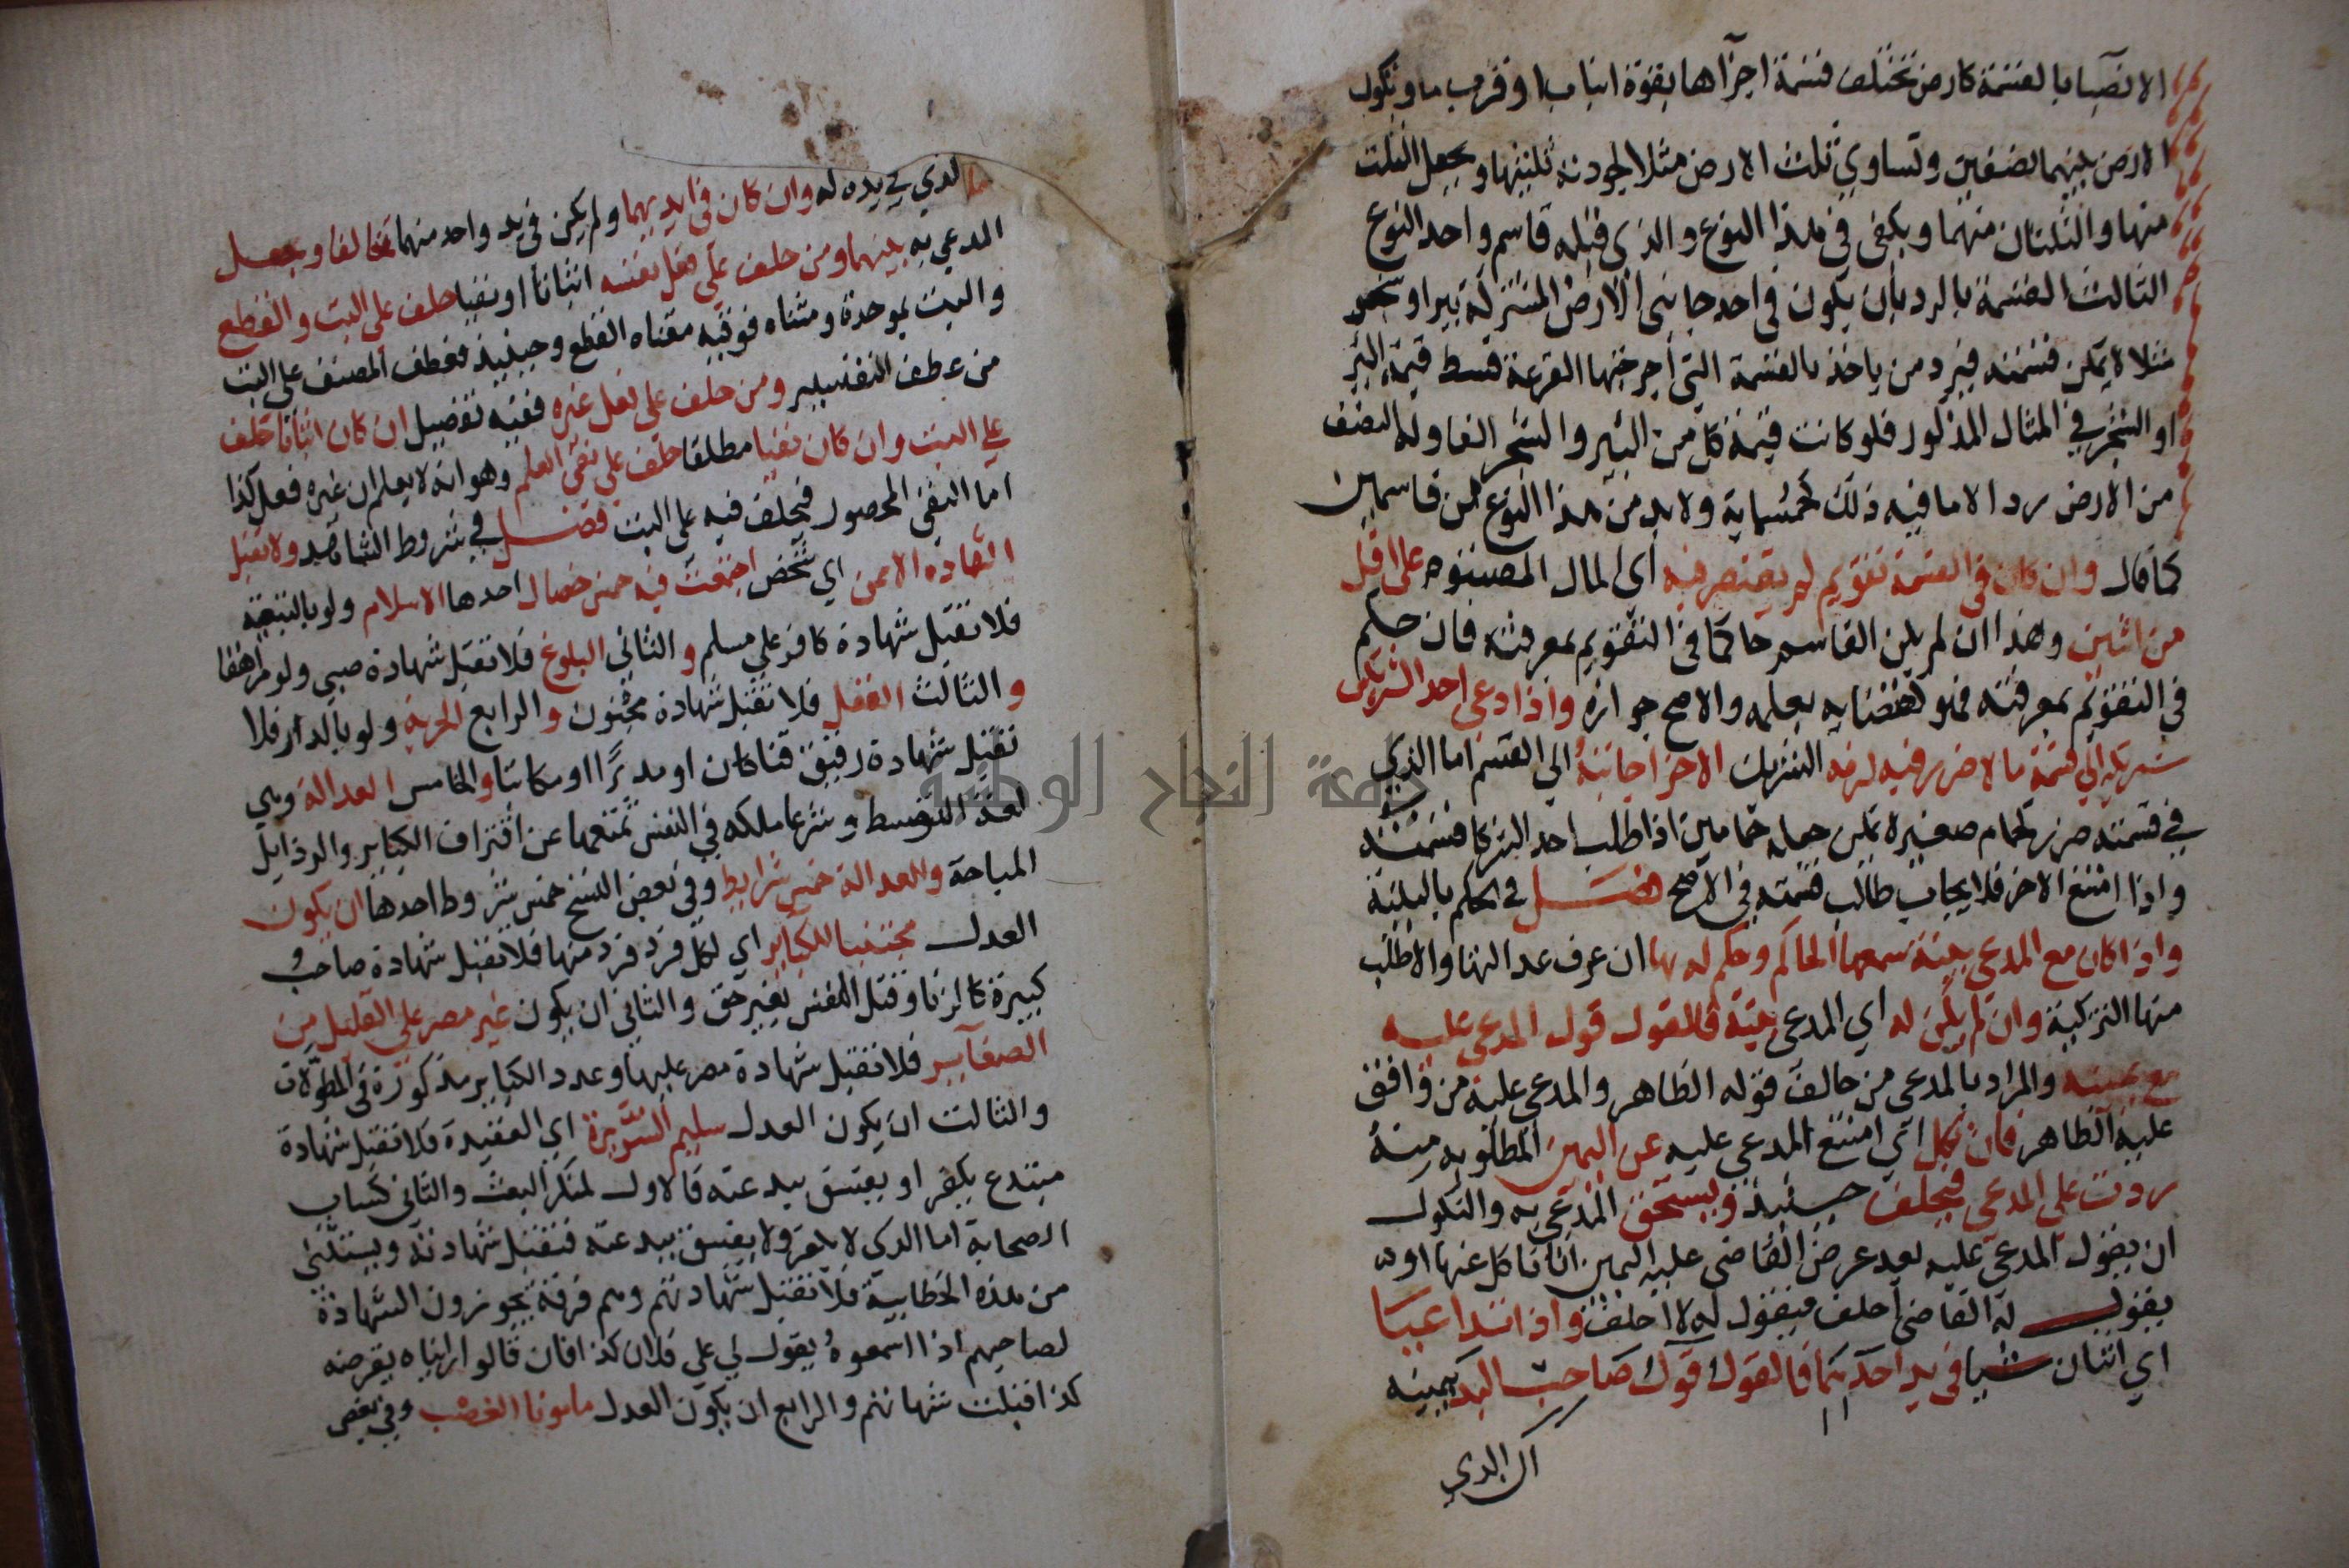 الانصبا بالقسمة كارض تختلف قيمة اجزآها بقوة انبات او قرب ما وتكون
الارض بينهما نصفين وتساوي ثلث الارض مثلا لجودته ثلثيها ويجعل الثلث
منها والثلثان منهما ويكفى في هذا النوع والذى قبله قاسم واحد النوع
الثالث القسمة بالرد بان يكون في احد جانبى الارض المشتركة بير او شجر
مثلا لا يمكن قسمته فيرد من ياخذ بالقسمة التى اخرجتها القرعة قسط قيمة البير
او الشجر في المثال المذكور فلو كانت قيمة كل من البير والشجر الفا وله النصف
من الارض رد الاما فيه ذلك خمسماية ولا بد من هذا النوع من قاسمين
كما قال وان كان في القسمة تقويم لم يقتصر فيه اى المال المقسوم على اقل
من اثنين وهذا ان لم يكن القاسم حاكما في التقويم بمعرفته فان حكم
في التقويم بمعرفته فهو كقضايه بعلمه والاصح جوازه واذا دعى احد الشريكين
شريكه الى قسمة ما لا ضرر فيه لزم الشريك الاخر اجابته الى القسم اما الذي
في قسمته ضرر كحمام صغير لا يمكن جعله حمامين اذا طلب احد الشركا قسمته
واذا امتنع الاخر فلا يجاب طالب قسمته في الاصح فصل في الحكم بالبينة
واذا كان مع المدعي بينة سمعها الحاكم وحكم له بها ان عرف عدالتها والا طلب
منها التزكية وان لم يكن له اي المدعي بينة فالقول قول المدعي عليه
مع يمينه والمراد بالمدعي من خالف قوله الظاهر والمدعي عليه من وافق
عليه الظاهر فان نكل اي امتنع المدعي عليه عن اليمين المطلوبه منه
ردت على المدعي فيحلف حينيذ ويستحق المدعي به والنكول
ان يقول المدعي عليه بعد عرض القاضى عليه اليمين انا ناكل عنها او
يقول له القاضى احلف فيقول له لا احلف واذا تداعيا
اي اثنان شيا في يد احدهما فالقول قول صاحب اليد بيمينه
ان الذي
الذي في يده له وان كان في ايديهما ولم يكن في يد واحد منهما تحالفا وجعل
المدعي به بينهما ومن حلف على فعل نفسه اثباتا او نفيا حلف على البت والقطع
والبت بموحدة ومثناه فوقيه معناه القطع وحينيذ فعطف المصنف على البت
من عطف التفسير ومن حلف على فعل غيره ففيه تفصيل ان كان اثباتا حلف
على البت وان كان نفيا مطلقا حلف على نفي العلم وهو انه لا يعلم ان غيره فعل كذا
اما النفي المحصور فيحلف فيه على البت فصل في شروط الشاهد ولا تقبل
الشهاده الا ممن اي شخص اجتمعت فيه خمس خصال احدها الاسلام ولو بالتبعية
فلا تقبل شهادة كافر على مسلم والثاني البلوغ فلا تقبل شهادة صبي ولو مراهقا
والثالث العقل فلا تقبل شهادة مجنون والرابع الحرية ولو بالدار فلا
تقبل شهادة رقيق قنا كان او مدبرًا او مكاتبا والخامس العدالة وهي
لغة التوسط وشرعا ملكه في النفس تمنعها عن اقتراف الكباير والرذايل
المباحة وللعدالة خمس شرايط وفي بعض النسخ خمس شروط احدها ان يكون
العدل مجتنبا للكباير اي لكل فرد فرد منها فلا تقبل شهادة صاحب
كبيرة كالزنا وقتل النفس بغير حق والثاني ان يكون غير مصر على القليل من
الصغآير فلا تقبل شهادة مصر عليها وعدد الكباير مذكورة في المطولات
والثالث ان يكون العدل سليم السريرة اي العقيدة فلا تقبل شهادة
مبتدع يكفر او يفسق ببدعته فالاول لمنكر البعث والثاني كساب
الصحابة اما الذي لا يكفر ولا يفسق ببدعته فتقبل شهادته ويستثنى
من هذه الخطابية فلا تقبل شهادتهم وهم فرقة يجوزون الشهادة
لصاحبهم اذا اسمعوهُ يقول لي على فلان كذا فان قالوا رايناه يقرضه
كذا قبلت شهاتهم والرابع ان يكون العدل مامونا الغضب وفي بعض
جامعة النجاح الوطنية